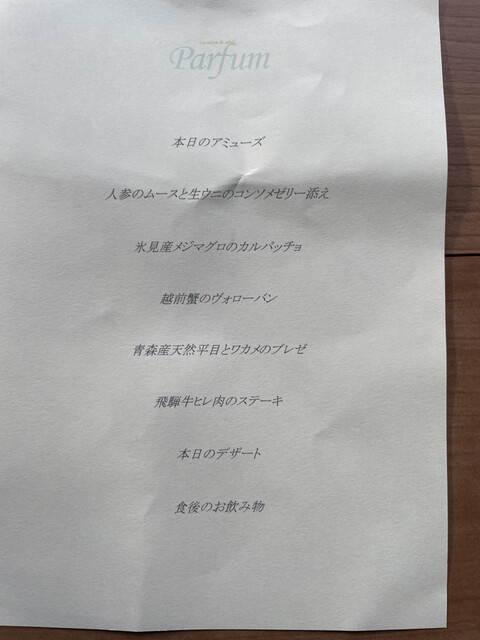 Parfum
本日のアミューズ
人参のムースと生ウニのコンソメゼリー添え
氷見産メジマグロのカルパッチョ
越前蟹のヴォローバン
青森産天然平目とワカメのブレゼ
飛騨牛ヒレ肉のステーキ
本日のデザート
食後のお飲み物